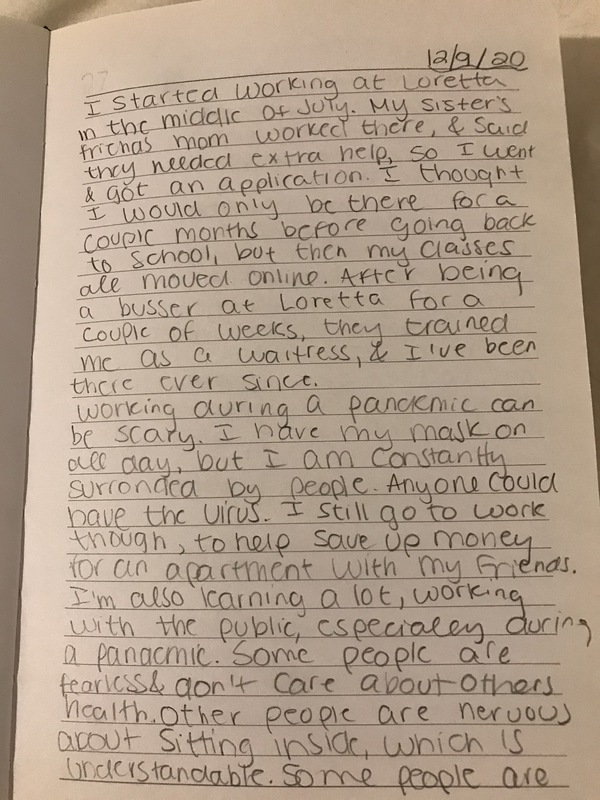 12/9/20
I started working at Loretta
in the middle of July. My sister's
friends mom worked there, & said
they needed extra help, so I went
& got an application. I thought
I would only be there for a
couple months before going back
to school, but then my classes
all moved online. After being
a busser at Loretta for a
couple of weeks, they trained
me as a waitress, & I've been
there ever since.
Working during a pandemic can
be scary. I have my mask on
all day, but I am constantly
surronded by people. Anyone could
have the virus. I still go to work
though, to help save up money
for an apartment with my friends.
I'm also learning a lot, working
with the public, especialey during
a pandemic. Some people are
fearless & don't care about others
health. Other people are nervous
about sitting inside, which is
understandable. Some people are